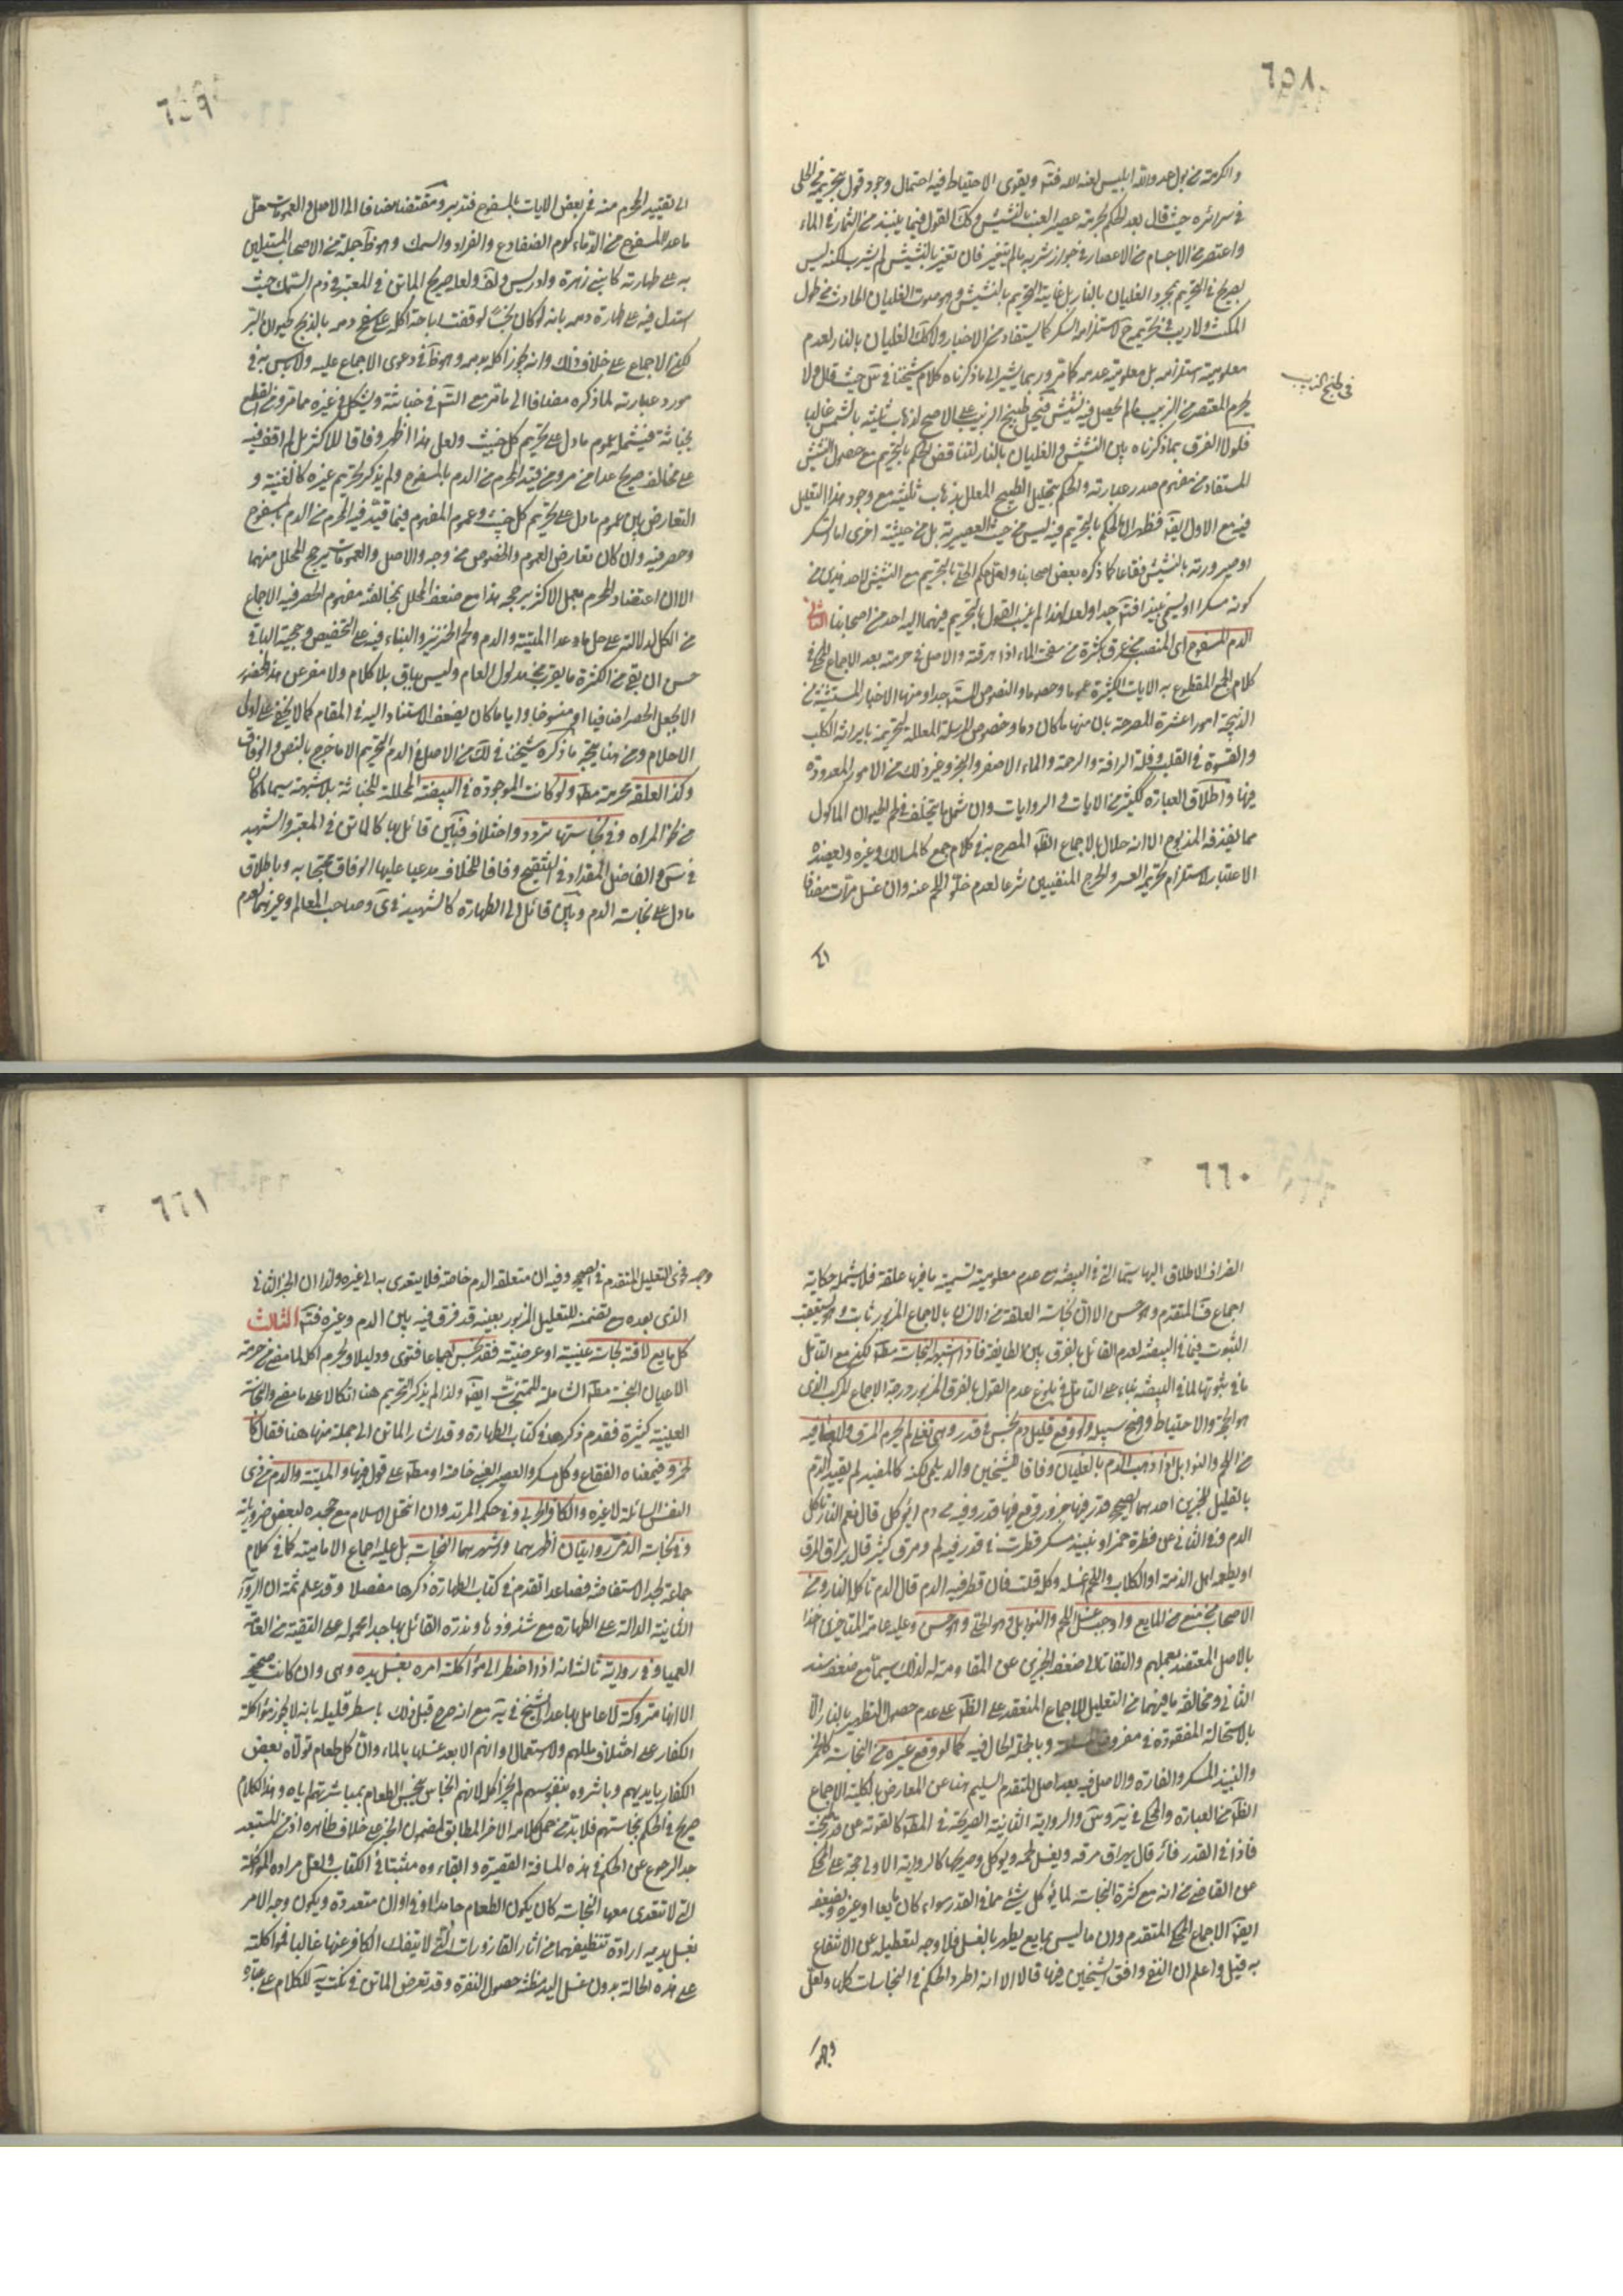 ٦٥٨
والكرمة من بول عدو الله ابليس لعنه الله فتأمل ويقوى الاحتياط فيه احتمال وجود قول بتحريمه في الحلي
في سرائره حيث قال بعد الحكم بحرمة عصير العنب بالنشيش وكذلك القول فيما ينبذ من الثمار في الماء
واعتصر من الاجسام من الاعصار في جواز شربه ما لم يتغير فان تغير بالنشيش لم يشرب لكنه ليس
بصريح في التحريم بمجرد الغليان بالنار بل غايته التحريم بالنشيش وهو صوت الغليان الحادث من طول
المكث ولا ريب في تحريمه ح لاستلزامه السكر كما يستفاد من الاخبار ولا كذلك الغليان بالنار لعدم
معلومية استلزامه بل معلومية عدمه كما مر وربما يشير الى ما ذكرناه كلام شيخنا في س حيث قال ولا
يحرم المعتصر من الزبيب ما لم يحصل فيه نشيش فيحل طبيخ الزبيب على الاصح لذهاب ثلثيه بالشمس غالبا
فلولا الفرق بما ذكرناه بين النشيش والغليان بالنار لتناقض الحكم بالتحريم مع حصول النشيش
المستفاد من مفهوم صدر عبارته والحكم بتحليل الطبيخ المعلل بذهاب ثلثيه مع وجود هذا التعليل
فيه مع الاول ايضا فظهر ان الحكم بالتحريم فيه ليس من حيث العصيرية بل من حيثية اخرى اما السكر
او صيرورته بالنشيش فقاعا كما ذكره بعض اصحابنا
كونه مسكرا او ليسمى نبيذا فتأمل جدا ولعله لهذا لم ينسب القول بالتحريم فيهما الى احد من اصحابنا الثاني
الدم المسفوح اى المنصب من عرق بكثرة من سفحت الماء اذا اهرقته والاصل في حرمته بعد الاجماع المحكي في
كلام الجمع المقطوع به الايات الكثيرة عموما وخصوصا والنصوص المستفيضة جدا ومنها الاخبار المستثنية من
الذبيحة امورا عشرة المصرحة بان منها ما كان دما وخصوص المرسلة المعللة لتحريمه بايراثه الكلب
والقسوة في القلب وقلة الرافة والرحمة والماء الاصفر والبخر وغير ذلك من الامور المعدودة
فيها واطلاق العبارة ككثير من الايات والروايات وان شمل ما يتخلف في لحم الحيوان الماكول
مما يقذفه المذبوح الا انه حلال بالاجماع الظاهر المصرح به في كلام جمع كالمسالك وغيره ويعضده
الاعتبار لاستلزام تحريمه العسر والحرج المنفيين شرعا لعدم خلو اللحم عنه وان غسل مرات مضافا
الى
في طبخ الزبيب
٦٥٩
الى تقييد المحرم منه في بعض الايات بالمسفوح فتدبر ومقتضاه مضافا الى الاصل والعمومات حل
ما عدا المسفوح من الدماء كدم الضفادع والقراد والسمك وهو ظاهر جملة من الاصحاب المستدلين
به على طهارته كابني زهرة وادريس ولف ولعله صريح الماتن في المعتبر في دم السمك حيث
استدل فيه على طهارة دمه بانه لو كان نجسا لوقفت اباحة اكله على سفح دمه بالذبح كحيوان البر
لكن الاجماع على خلاف ذلك وانه يجوز اكله بدمه وهو ظاهر في دعوى الاجماع عليه ولا بأس به في
مورد عبارته لما ذكره مضافا الى ما مر مع الشك في خباثته ويشكل في غيره مما مر ومن القطع
بخباثته فيشمله عموم ما دل على تحريم كل خبيث ولعل هذا اظهر وفاقا للاكثر بل لم اقف فيه
على مخالف صريح عدا من مر ومن قيد المحرم من الدم بالمسفوح ولم يذكر تحريم غيره كالغنية و
التعارض بين عموم ما دل على تحريم كل خبيث وعموم المفهوم فيما قيد فيه المحرم من الدم بالمسفوح
وحصر فيه وان كان تعارض العموم والخصوص من وجه والاصل والعمومات يرجح المحلل منهما
الا ان اعتضاد المحرم بعمل الاكثر يرجحه هذا مع ضعف المحلل بمخالفة مفهوم الحصر فيه الاجماع
من الكل لدلالته على حل ما عدا الميتة والدم ولحم الخنزير والبناء فيه على التخصيص وحجية الباقي
حسن ان بقي من الكثرة ما يقرب من مدلول العام وليس بباق بلا كلام ولا مفر عن هذا المحذور
الا بجعل الحصر اضافيا او منسوخا واياما كان يضعف الاستناد اليه في المقام كما لا يخفى على اولى
الاحلام ومن هنا يتجه ما ذكره شيخنا في لك من الاصل في الدم التحريم الا ما خرج بالنص والوفاق
وكذا العلقة محرمة مطلقا ولو كانت الموجودة في البيضة المحللة للخباثة بلا شبهة سيما ما كان
من نحو المراه وفي نجاستها تردد واختلاف فبين قائل بها كالماتن في المعتبر والشهيد
في س والفاضل المقداد في التنقيح وفاقا للخلاف مدعيا عليها الوفاق محتجا به وباطلاق
ما دل على نجاسة الدم وبين قائل الى الطهارة كالشهيد في ى وصاحب المعالم وغيرهما لعدم
٦٦٠
انصراف الاطلاق اليها سيما التي في البيضة مع عدم معلومية تسمية ما فيها علقة فلا يشمله حكاية
اجماع ف المتقدم وهو حسن الا ان نجاسة العلقة من الانسان بالاجماع المزبور ثابت وهو يستعقب
الثبوت فيما في البيضة لعدم القائل بالفرق بين الطايفة فاذا الاشبه النجاسة مطلقا لكنه مع التامل
ما في ثبوتها لما في البيضة بناء على التامل في بلوغ عدم القول بالفرق المزبور درجة الاجماع المركب الذي
هو الحجة والاحتياط واضح سبيله ولو وقع قليل دم نجس في قدر وهي تغلي لم يحرم المرق ولا ما فيه
من اللحم والتوابل اذا ذهب الدم بالغليان وفاقا للشيخين والديلمي لكنه كالمفيد لم يقيد الدم
بالقليل للخبرين احدهما الصحيح قدر فيها جزور وقع فيها قدر وقية من دم ايؤكل قال نعم النار تاكل
الدم وفي الثاني عن قطرة خمر او نبيذ مسكر قطرت في قدر فيه لحم ومرق كثير قال يهراق المرق
او يطعمه اهل الذمة او الكلاب واللحم اغسله وكله قلت فان قطر فيه الدم قال الدم تاكله النار ومن
الاصحاب من منع من المايع واوجب غسل اللحم والتوابل وهو الحلي وهو حسن وعليه عامة المتاخرين اخذا
بالاصل المعتضد بعملهم والتفاتا الى ضعف الخبرين عن المقاومة له لذلك سيما مع ضعف سند
الثاني ومخالفة ما فيهما من التعليل للاجماع المنعقد على الظاهر على عدم حصول التطهير بالنار الا
بالاستحالة المفقودة في مفروض وبالجملة الحال فيه كما لو وقع غيره من النجاسة كالخمر
والنبيذ المسكر والفارة والاصل فيه بعد اصل المتقدم السليم هنا عن المعارض بالكلية الاجماع
الظاهر من العبارة والمحكي في ئر وس والرواية الثانية الصريحة في المطلوب كالقوية عن قدر طبخت
فاذا في القدر فأر قال يهراق مرقه ويغسل لحمه ويؤكل وصريحها كالرواية الاولى حجة على المحكي
عن القاضي من انه مع كثرة النجاسة لما يؤكل شيء مما في القدر سواء كان مايعا او غيره ويضعفه
ايضا الاجماع المحكي المتقدم وان ما ليس بمايع يطهر بالغسل فلا وجه لتعطيله عن الانتفاع
به قيل واعلم ان الشيخ وافق الشيخين فيها قالا الا انه اطرد الحكم في النجاسات كلها ولعل
وجهه
٦٦١
وجهه فحوى التعليل المتقدم في الصحيح وفيه ان متعلقه الدم خاصة فلا يتعدى به الى غيره ولذا ان الخبر الثاني
الذي بعده مع تضمنه للتعليل المزبور بعينه قد فرق فيه بين الدم وغيره فتأمل الثالث
كل مايع لاقته نجاسة عينية او عرضية فقد نجس اجماعا فتوى ودليلا ويحرم اكله لما مضى من حرمة
الاعيان النجسة مطلقا الشاملة للمتنجسة ايضا ولذا لم يذكر التحريم هنا اتكالا على ما مضى والنجاسة
العينية كثيرة فقد مر ذكرها في كتاب الطهارة وقد اشار الماتن الى جملة منها هنا فقال كا
لخمر وفي معناه الفقاع وكل مسكر والعصير العنبي خاصة او مطلقا على قول فيها والميتة والدم من ذي
النفس السائلة لا غيره والكافر الحربي وفي حكمه المرتد وان انتحل الاسلام مع جحده لبعض ضرورياته
وفي نجاسة الذمي روايتان اظهرهما واشهرهما النجاسة بل عليه اجماع الامامية كما في كلام
جماعة لحد الاستفاضة فصاعدا تقدم في كتاب الطهارة ذكرها مفصلا وقد علم ثمة ان الرواية
الثانية الدالة على الطهارة مع شذوذها وندرة القائل بها جدا محمولة على التقية من العامة
العمياء وفي رواية ثالثة انه اذا اضطر الى مؤاكلته امره بغسل يده وهي وان كانت صحيحة
الا انها متروكة لا عامل بها عدا الشيخ في ية مع انه صرح قبل ذلك باسطر قليلة بانه لا يجوز مؤاكلة
الكفار على اختلاف مللهم ولا استعمال اوانيهم الا بعد غسلها بالماء وان كل طعام تولاه بعض
الكفار بايديهم وباشروه بنفوسهم لم يجز اكله لانهم انجاس ينجس الطعام بمباشرتهم اياه وهذا الكلام
صريح في الحكم بنجاستهم فلا بد من حمل كلامه الاخر المطابق لمضمون الخبر على خلاف ظاهره اذ من المستبعد
جدا الرجوع عن الحكم في هذه المسافة القصيرة وابقاءه مثبتا في الكتاب ولعل مراده المؤاكلة
التي لا تتعدى معها النجاسة كان يكون الطعام جامدا او في اواني متعددة ويكون وجه الامر
بغسل يديه ارادة تنظيفهما من اثار القاذورات التي لا ينفك الكافر عنها غالبا فمؤاكلته
على هذه الحالة بدون غسل اليد مظنة حصول النفرة وقد تعرض الماتن في نكت ية للكلام على عبارة